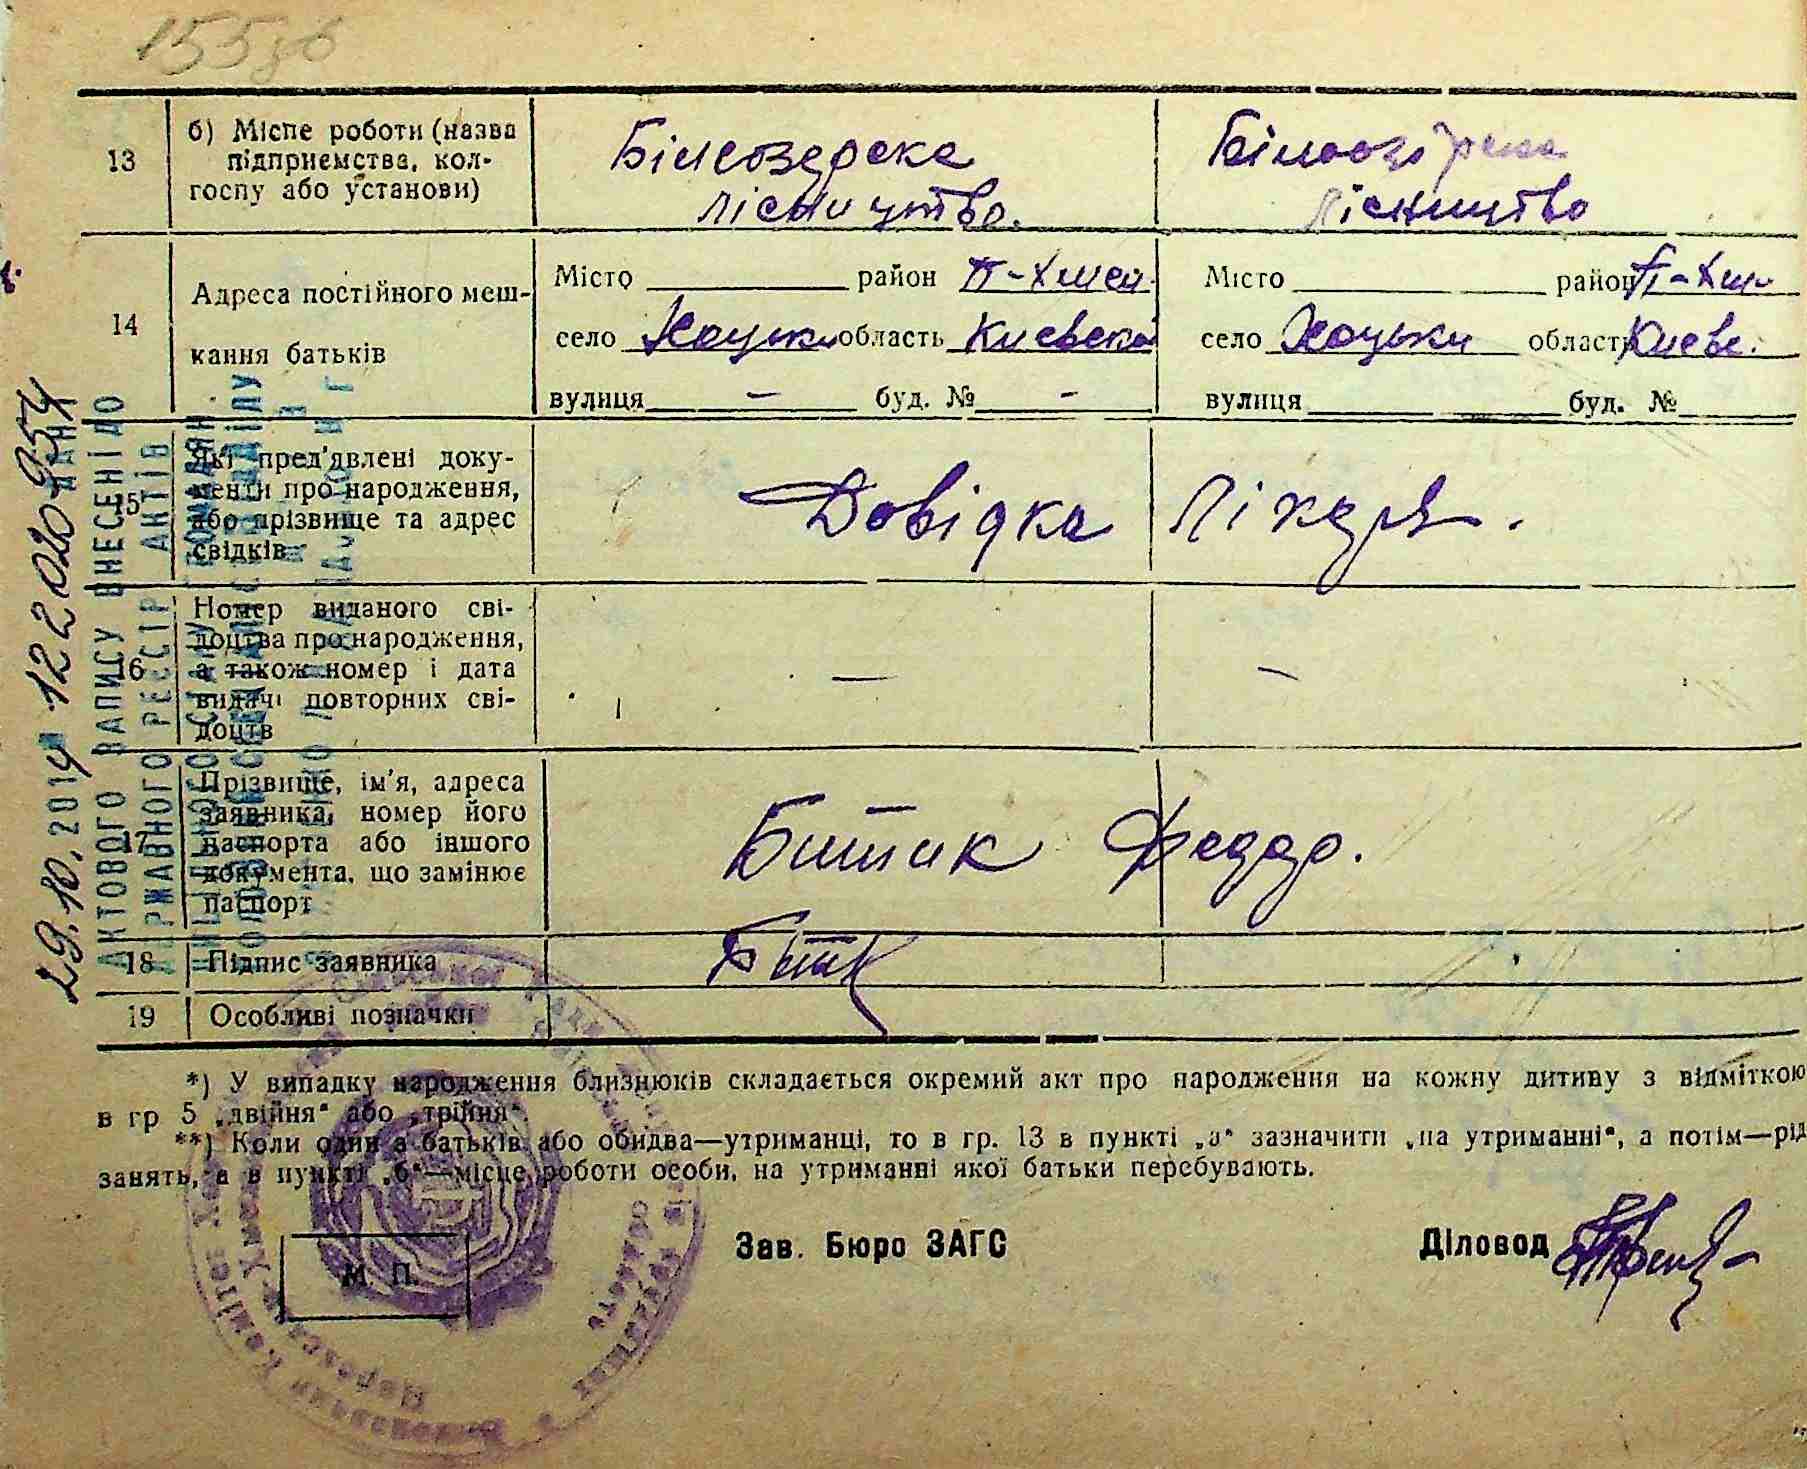 155зв
13 б) Місце роботи (назва
підприємства, кол-
госпу або установи)
Білоозерске
лісництво.
лісництво
14 Адреса постійного меш-
кання батьків
Місто район П-Хмел.
село Хоцьки область Киевской
вулиця – буд. № –
Місто район П-Хм.
село Хоцьки область Киевс.
вулиця буд. №
15 Які пред'явлені доку-
менти про народження,
або прізвище та адрес
свідків
Довідка лікаря.
16 Номер виданого сві-
доцтва про народження,
а також номер і дата
видачі повторних сві-
доцтв
— –
17 Прізвище, ім'я, адреса
заявника, номер його
паспорта або іншого
документа, що замінює
паспорт
Битик Федор.
18 Підпис заявника
Битк
19 Особливі позначки
*) У випадку народження близнюків складається окремий акт про народження на кожну дитину з відміткою
в гр 5 „двійня“ або „трійня“.
**) Коли один з батьків або обидва—утриманці, то в гр. 13 в пункті „а“ зазначити „на утриманні“, а потім—рід
занять, а в пункті „б“—місце роботи особи, на утриманні якої батьки перебувають.
М. П.
Зав. Бюро ЗАГС
Діловод
АКТОВОГО ЗАПИСУ ВНЕСЕНІ ДО
ДЕРЖАВНОГО РЕЄСТР АКТІВ
29.10.2014 12202095